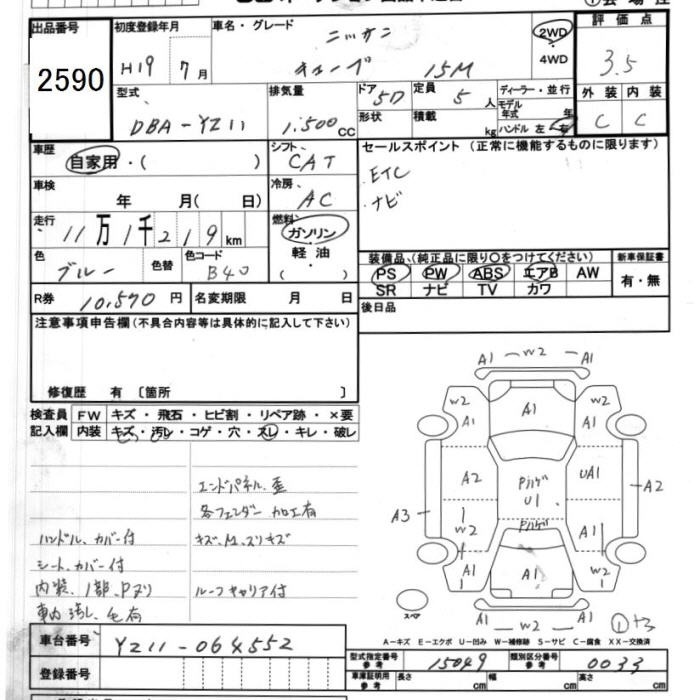 出品番号 初度登録年月 車名・グレード ニッサン 2WD 評価点
2590 H19 7月 キューブ 15M ・4WD 3.5
型式 排気量 ドア 5D 定員 5人 ディーラー・並行 外装 内装
DBA-YZ11 1.500cc 形状 積載 kg モデル年式 年 C C
ハンドル 左・右
車歴 自家用・( ) シフト CAT セールスポイント(正常に機能するものに限ります)
車検 年 月( 日) 冷房 AC ETC
ナビ
走行 11万1千219km 燃料 ガソリン・軽油・( )
色 ブルー 色替 色コード B40 装備品(純正品に限り○をつけてください) 新車保証書
PS PW ABS エアB AW 有・無
R券 10.570円 名変期限 月 日 SR ナビ TV カワ
注意事項申告欄(不具合内容等は具体的に記入して下さい) 後日品
修復歴 有〔箇所 〕
検査員 FW キズ・飛石・ヒビ割・リペア跡・×要
記入欄 内装 キズ・汚レ・コゲ・穴・スレ・キレ・破レ
エンドパネル、歪
各フェンダー加工有
ハンドル、カバー付 キズ、M、スリキズ
シート、カバー付
内装、1部、Pヌリ ルーフキャリア付
車内汚し、毛有
A1 W2 A1
W2 A1 W2
A1 A1
A2 Pハゲ U1 UA1 A2
A3 Pハゲ
W2 A1
A1 A1 W2
A1 W2 A1
スペア ①+3
A-キズ E-エクボ U-凹み W-補修跡 S-サビ C-腐食 XX-交換済
車台番号 YZ11-064552
型式指定番号 参考 15049 類別区分番号 参考 0033
登録番号 車庫証明用 参考 長さ cm 幅 cm 高さ cm